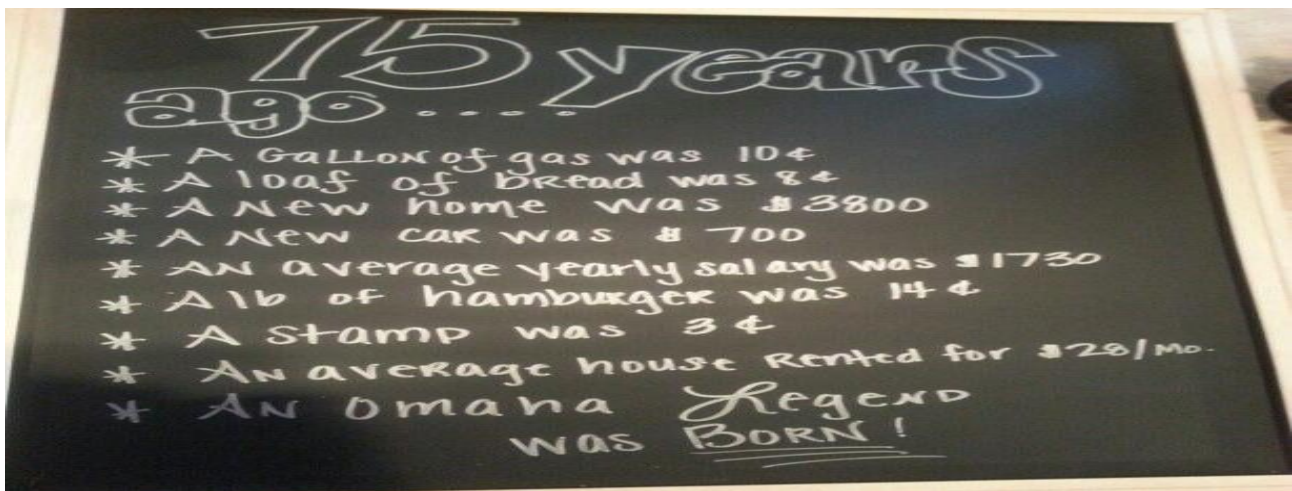 75 years
ago .....
* A GALLON of gas was 10¢
* A loaf of bread was 8¢
* A New home was $3800
* A New car was $700
* AN average yearly salary was $1730
* A lb of hamburger was 14¢
* A stamp was 3¢
* AN average house Rented for $28/Mo.
* AN Omaha Legend
was BORN!